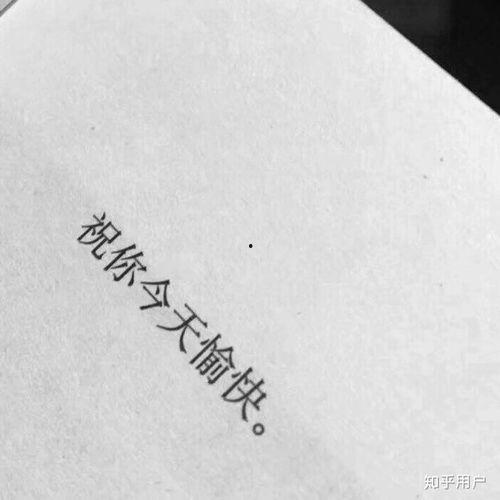 祝你今天愉快。
知乎用户